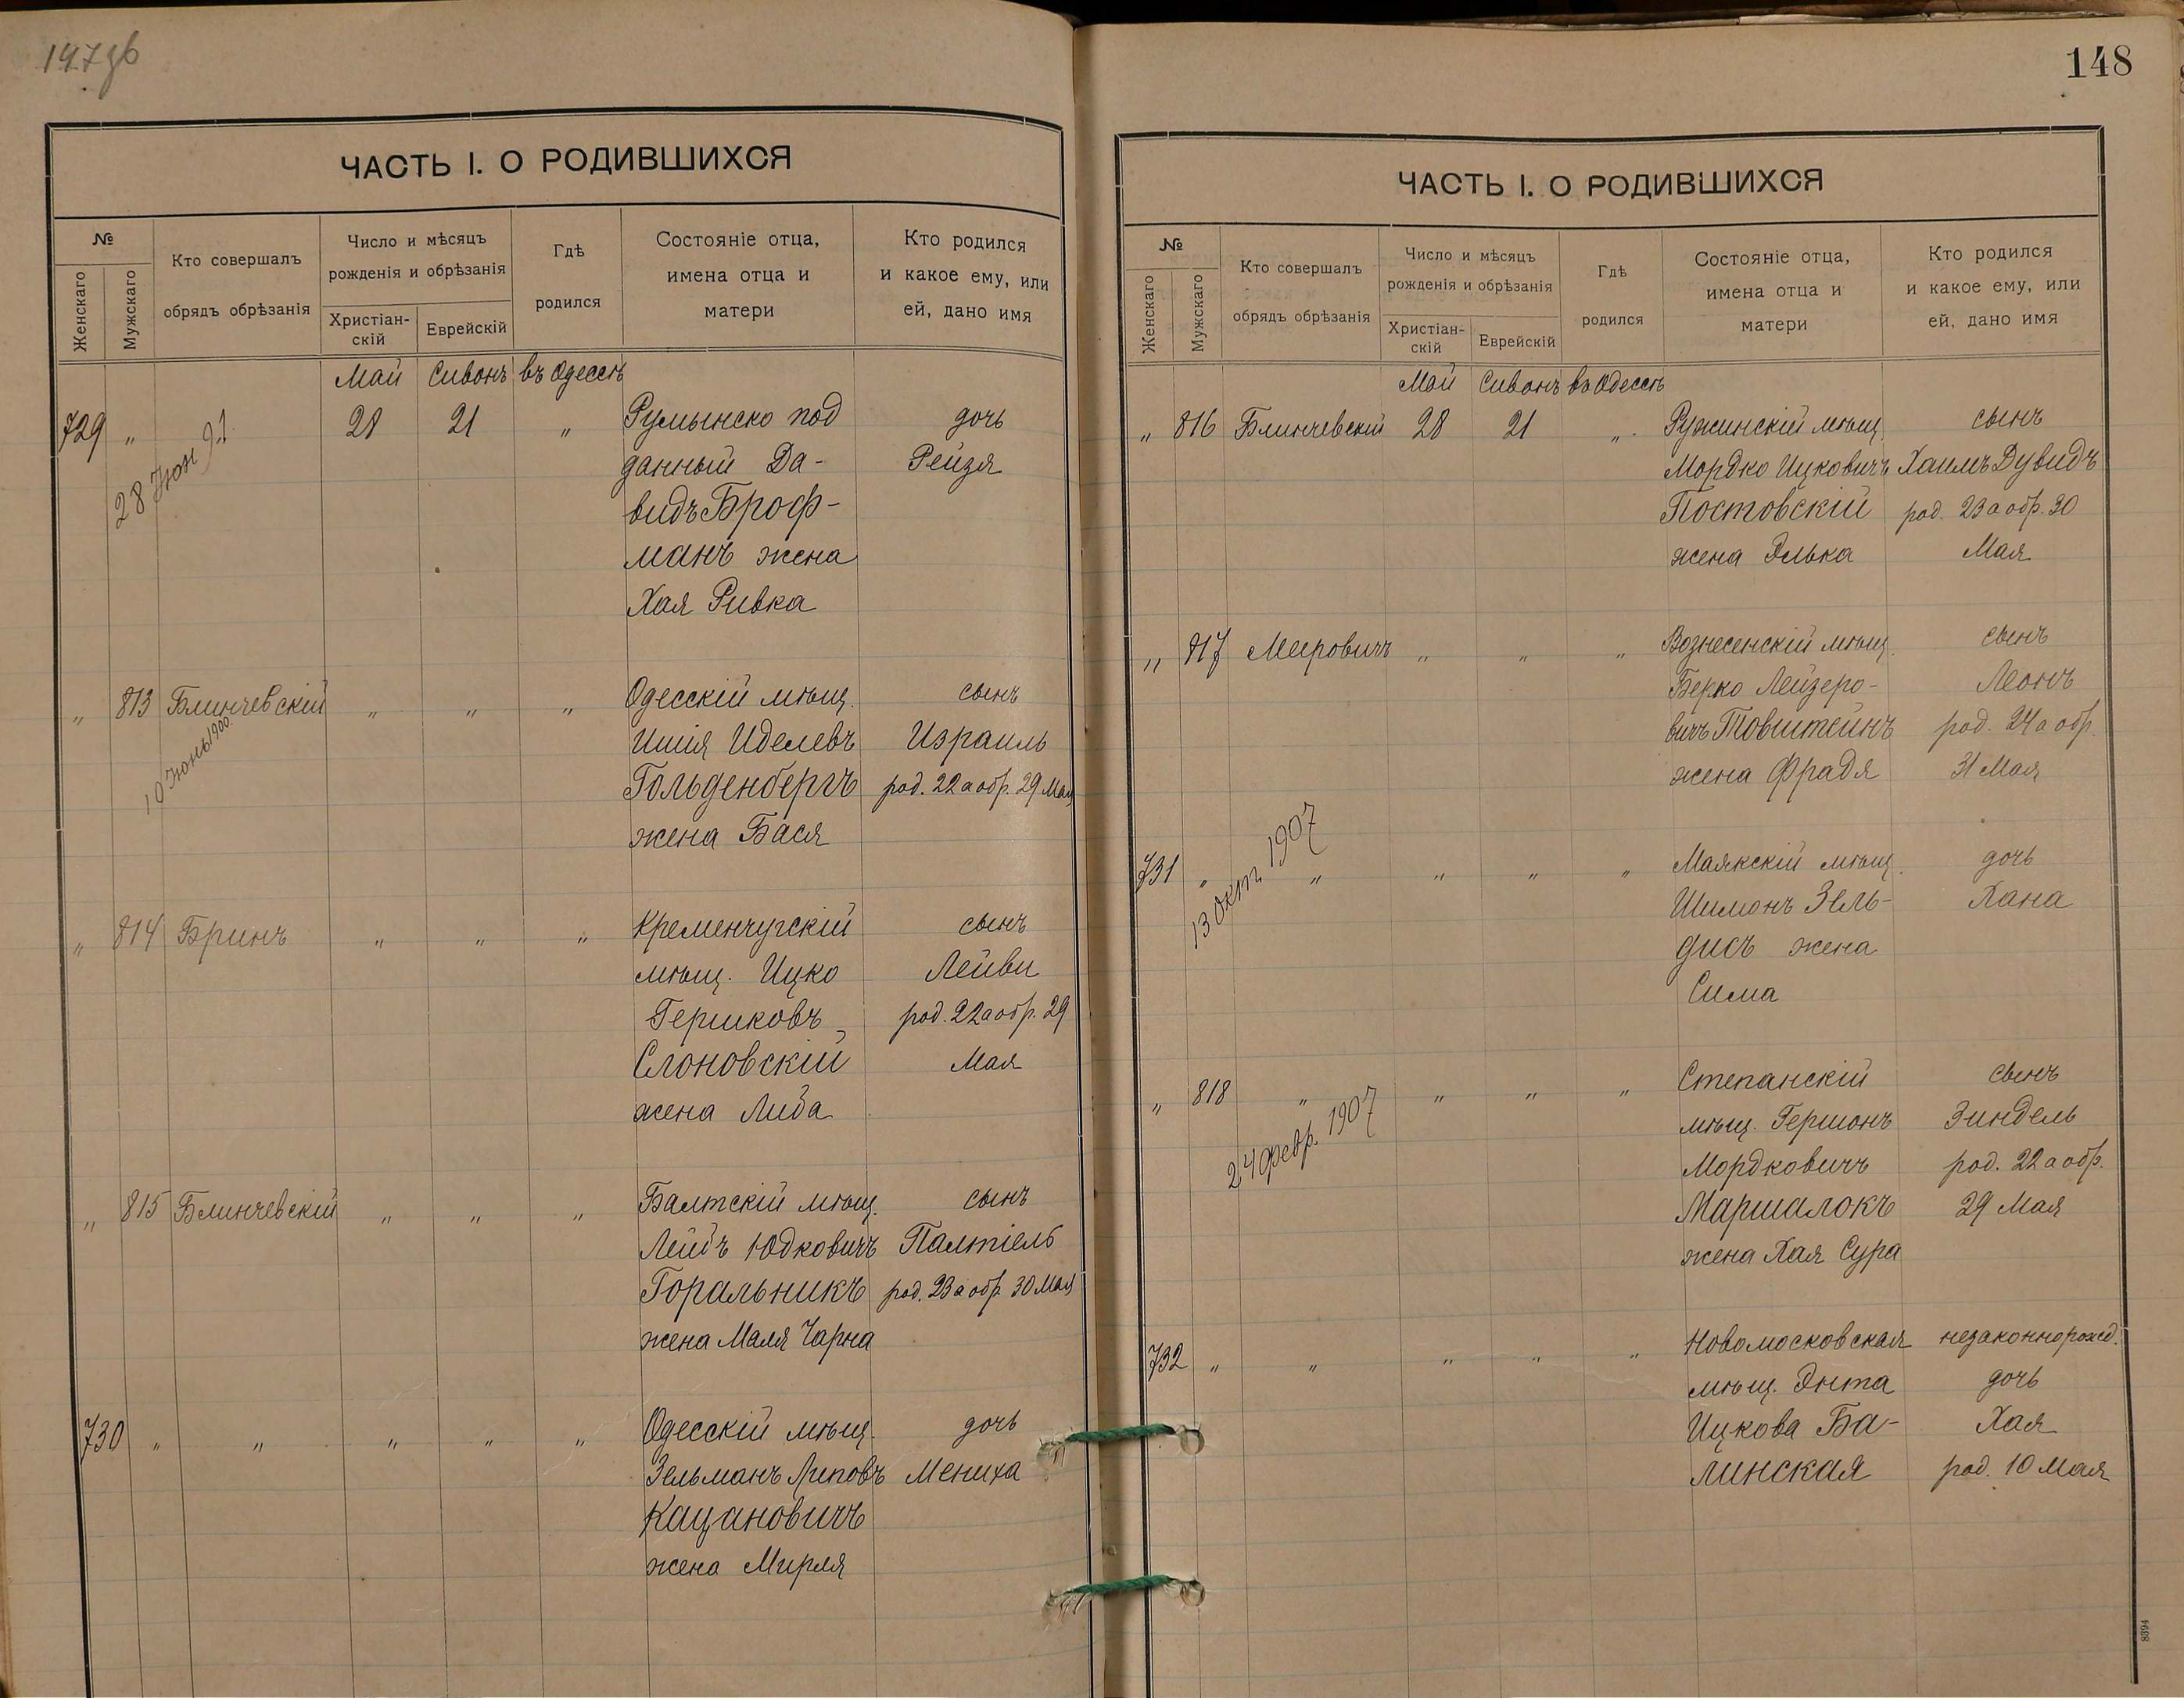 147об
ЧАСТЬ I. О РОДИВШИХСЯ
№
Женскаго
Мужскаго
Кто совершалъ
обрядъ обрѣзанія
Число и мѣсяцъ
рожденія и обрѣзанія
Христіан-
скій
Еврейскій
Гдѣ
родился
Состояніе отца,
имена отца и
матери
Кто родился
и какое ему, или
ей, дано имя
Май Сивонъ въ Одессѣ
729 " 28 21 " Румынско под дочь
данный Да- Рейзя
видъ Броф-
манъ жена
Хая Ривка
28 Июн 91
" 813 Блинчевскій " " " Одесскій мѣщ. сынъ
Ишія Иделевъ Израиль
Гольденбергъ род. 22 а обр. 29 Мая
жена Бася
10 Июнь 1900
" 814 Бринъ " " " Кременчугскій сынъ
мѣщ. Ицко Лейви
Гершковъ род. 22 а обр. 29
Слоновскій Мая
жена Либа
" 815 Блинчевскій " " " Балтскій мѣщ. сынъ
Лейбъ Юдковичъ Палтіель
Горальникъ род. 23 а обр. 30 Мая
жена Маля Чарна
730 " " " " " Одесскій мѣщ. дочь
Зельманъ Липовъ Мениха
Кацановичъ
жена Мирля
148
ЧАСТЬ I. О РОДИВШИХСЯ
№
Женскаго
Мужскаго
Кто совершалъ
обрядъ обрѣзанія
Число и мѣсяцъ
рожденія и обрѣзанія
Христіан-
скій
Еврейскій
Гдѣ
родился
Состояніе отца,
имена отца и
матери
Кто родился
и какое ему, или
ей, дано имя
Май Сивонъ въ Одессѣ
" 816 Блинчевскій 28 21 " Ружинскій мѣщ. сынъ
Мордко Ицковичъ Хаимъ Дувидъ
Постовскій род. 23 а обр. 30
жена Элька Мая
" 817 Меировичъ " " " Вознесенскій мѣщ. сынъ
Берко Лейзеро- Леонъ
вичъ Товштейнъ род. 24 а обр.
жена Фрадя 31 Мая
731 " " " " " Маякскій мѣщ. дочь
Шимонъ Зель- Хана
дисъ жена
Сима
13 Окт. 1907
" 818 " " " " Степанскій сынъ
мѣщ. Гершонъ Зиндель
Мордковичъ род. 22 а обр.
Маршалокъ 29 Мая
жена Хая Сура
24 февр. 1907
732 " " " " " Новомосковская незаконнорожд.
мѣщ. Энта дочь
Ицкова Ба- Хая
линская род. 10 Мая
8394